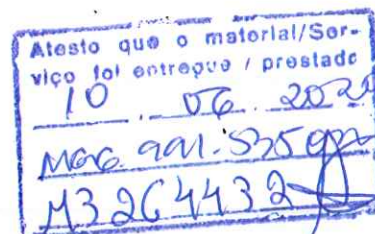 Atesto que o material/Ser-
viço foi entregue / prestado
10 06 2020
991.535
M3264432